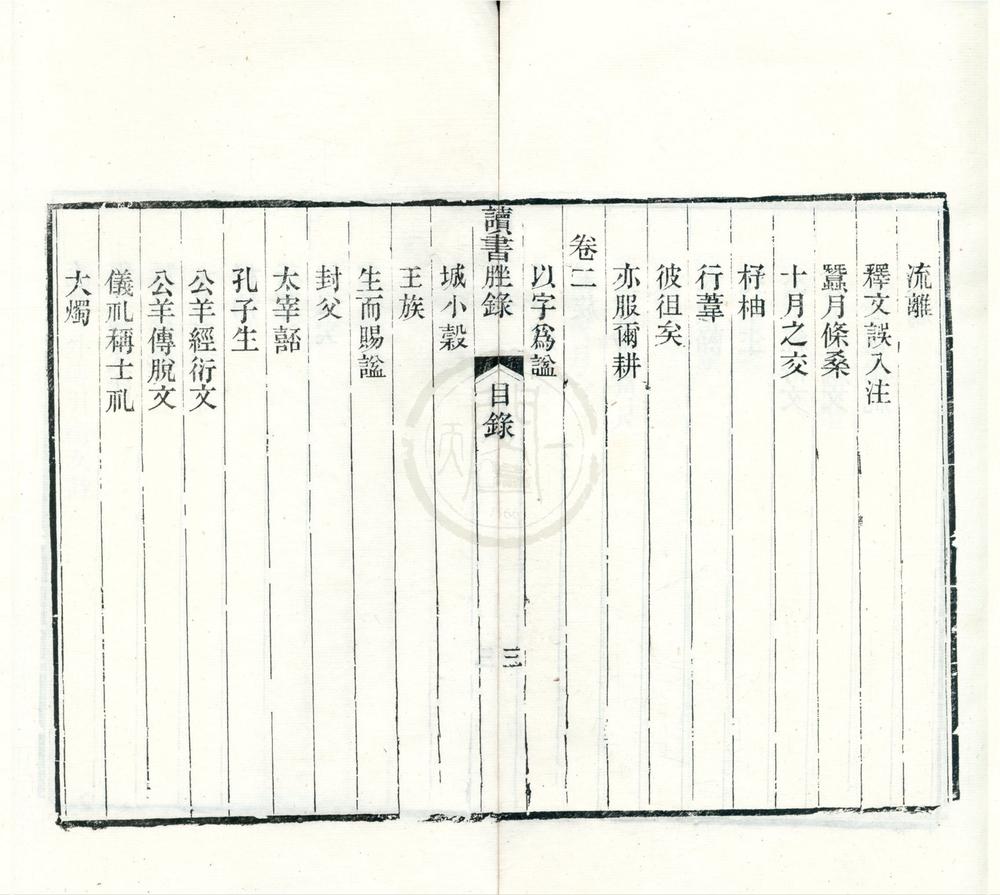 流離
釋文誤入注
蠶月條桑
十月之交
杼柚
行葦
彼徂矣
亦服爾耕
卷二
以字爲諡
讀書脞錄 目錄 三
城小穀
王族
生而賜諡
封父
太宰嚭
孔子生
公羊經衍文
公羊傳脫文
儀礼稱士礼
大燭